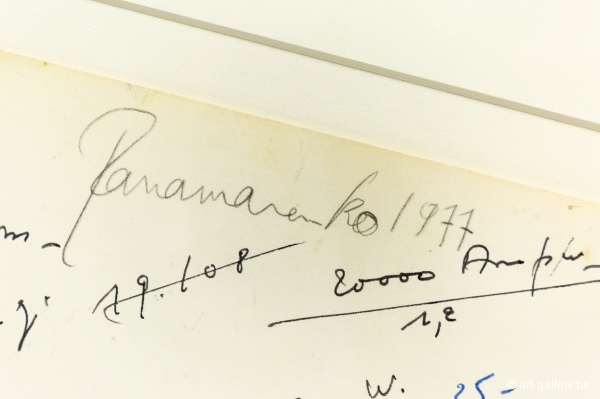 Panamarenko 1977
19.108
20000
1,2
W. 25-
© art-gallery.be